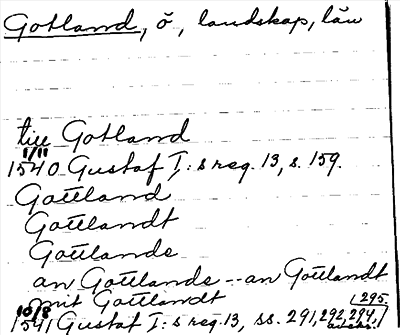 Gotland, ö, landskap, län
till Gotland
1/11
1540 Gustaf I:s reg. 13, s. 159.
Gottland
Gottlandt
Gottlande
an Gottlande -- an Gottlandt
mit Gottlandt
10/8
1541 Gustaf I:s reg. 13, ss. 291, 292, 294,
295.